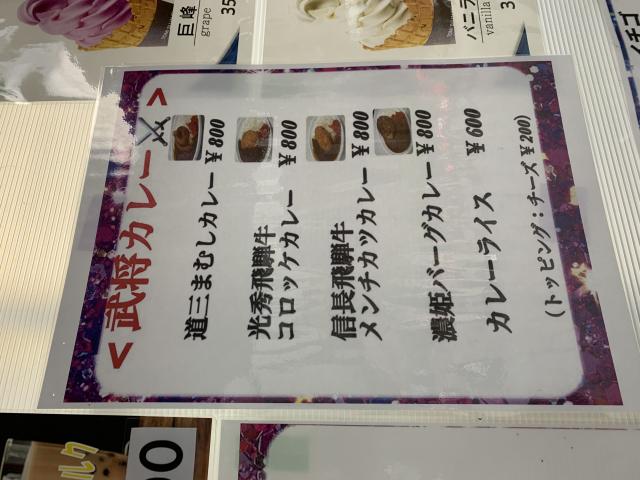 巨峰
grape
35
バニラ
vanilla
3
チゴ
<武将カレー⚔>
道三まむしカレー ¥800
光秀飛騨牛
コロッケカレー ¥800
信長飛騨牛
メンチカツカレー ¥800
濃姫バーグカレー ¥800
カレーライス ¥600
(トッピング:チーズ¥200)
ルク
00